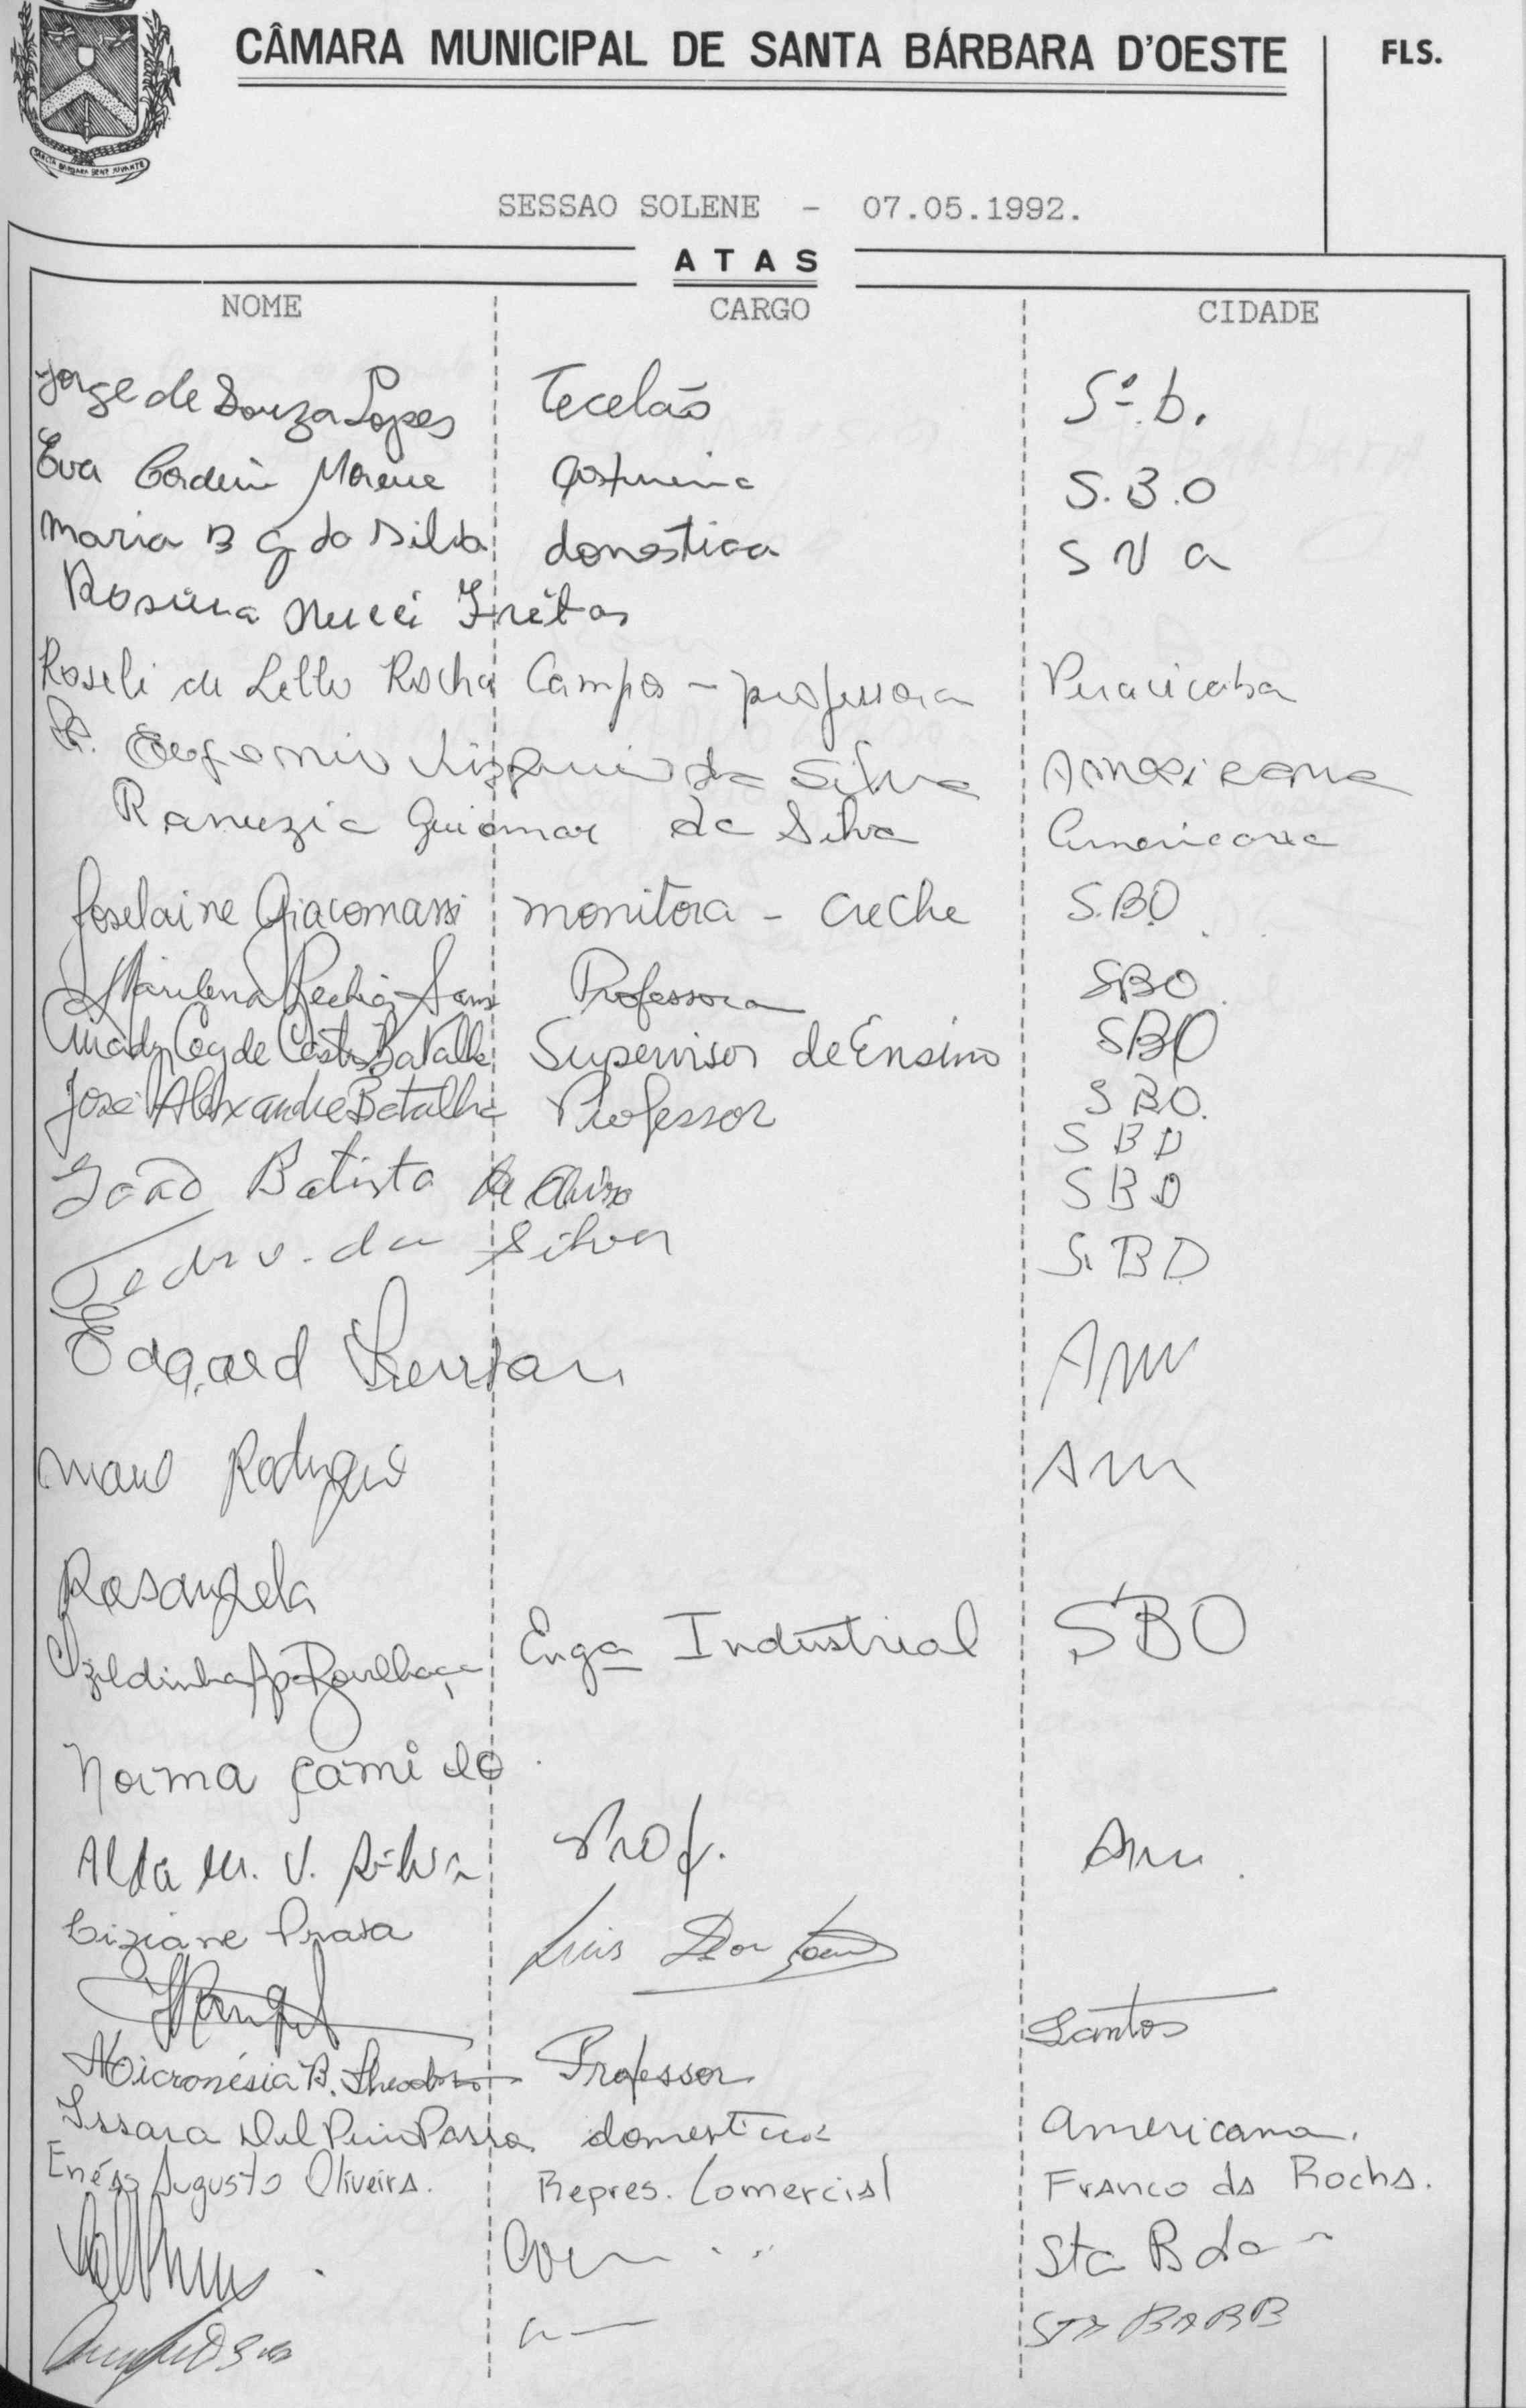 CÂMARA MUNICIPAL DE SANTA BÁRBARA D'OESTE FLS.
SANTA BARBARA BENE JUVANTE
SESSAO SOLENE - 07.05.1992.
ATAS
NOME CARGO CIDADE
Jorge de Souza Lopes Tecelão Sª. b.
Eva S.B.O
Maria B G da Silva domestica S N a
Rosina Nucci Freitas
Roseli de Lello Rocha Campos - professora Piracicaba
da Silva Americana
Ranuzia Guiomar da Silva Americana
Joselaine Giacomassi monitora - creche S.BO
Marilena Professora SBO
de Castro Batalha Supervisor de Ensino SBO
José Alexandre Batalha Professor S BO.
S B O
João Batista S B O
Pedro v. da Silva S. B O
Edgard Am
Rodrigues Am
Rosangela
Izildinha Ap. Engª Industrial SBO
Norma Camilo
Alda M. V. Silva Prof. Am.
Liziane Prata Luis
Santos
Micronésia B. Theodoro Professor
Issara Del Passo domestica Americana.
Enéas Augusto Oliveira. Repres. Comercial Franco da Rocha.
Sta B
STA BARB